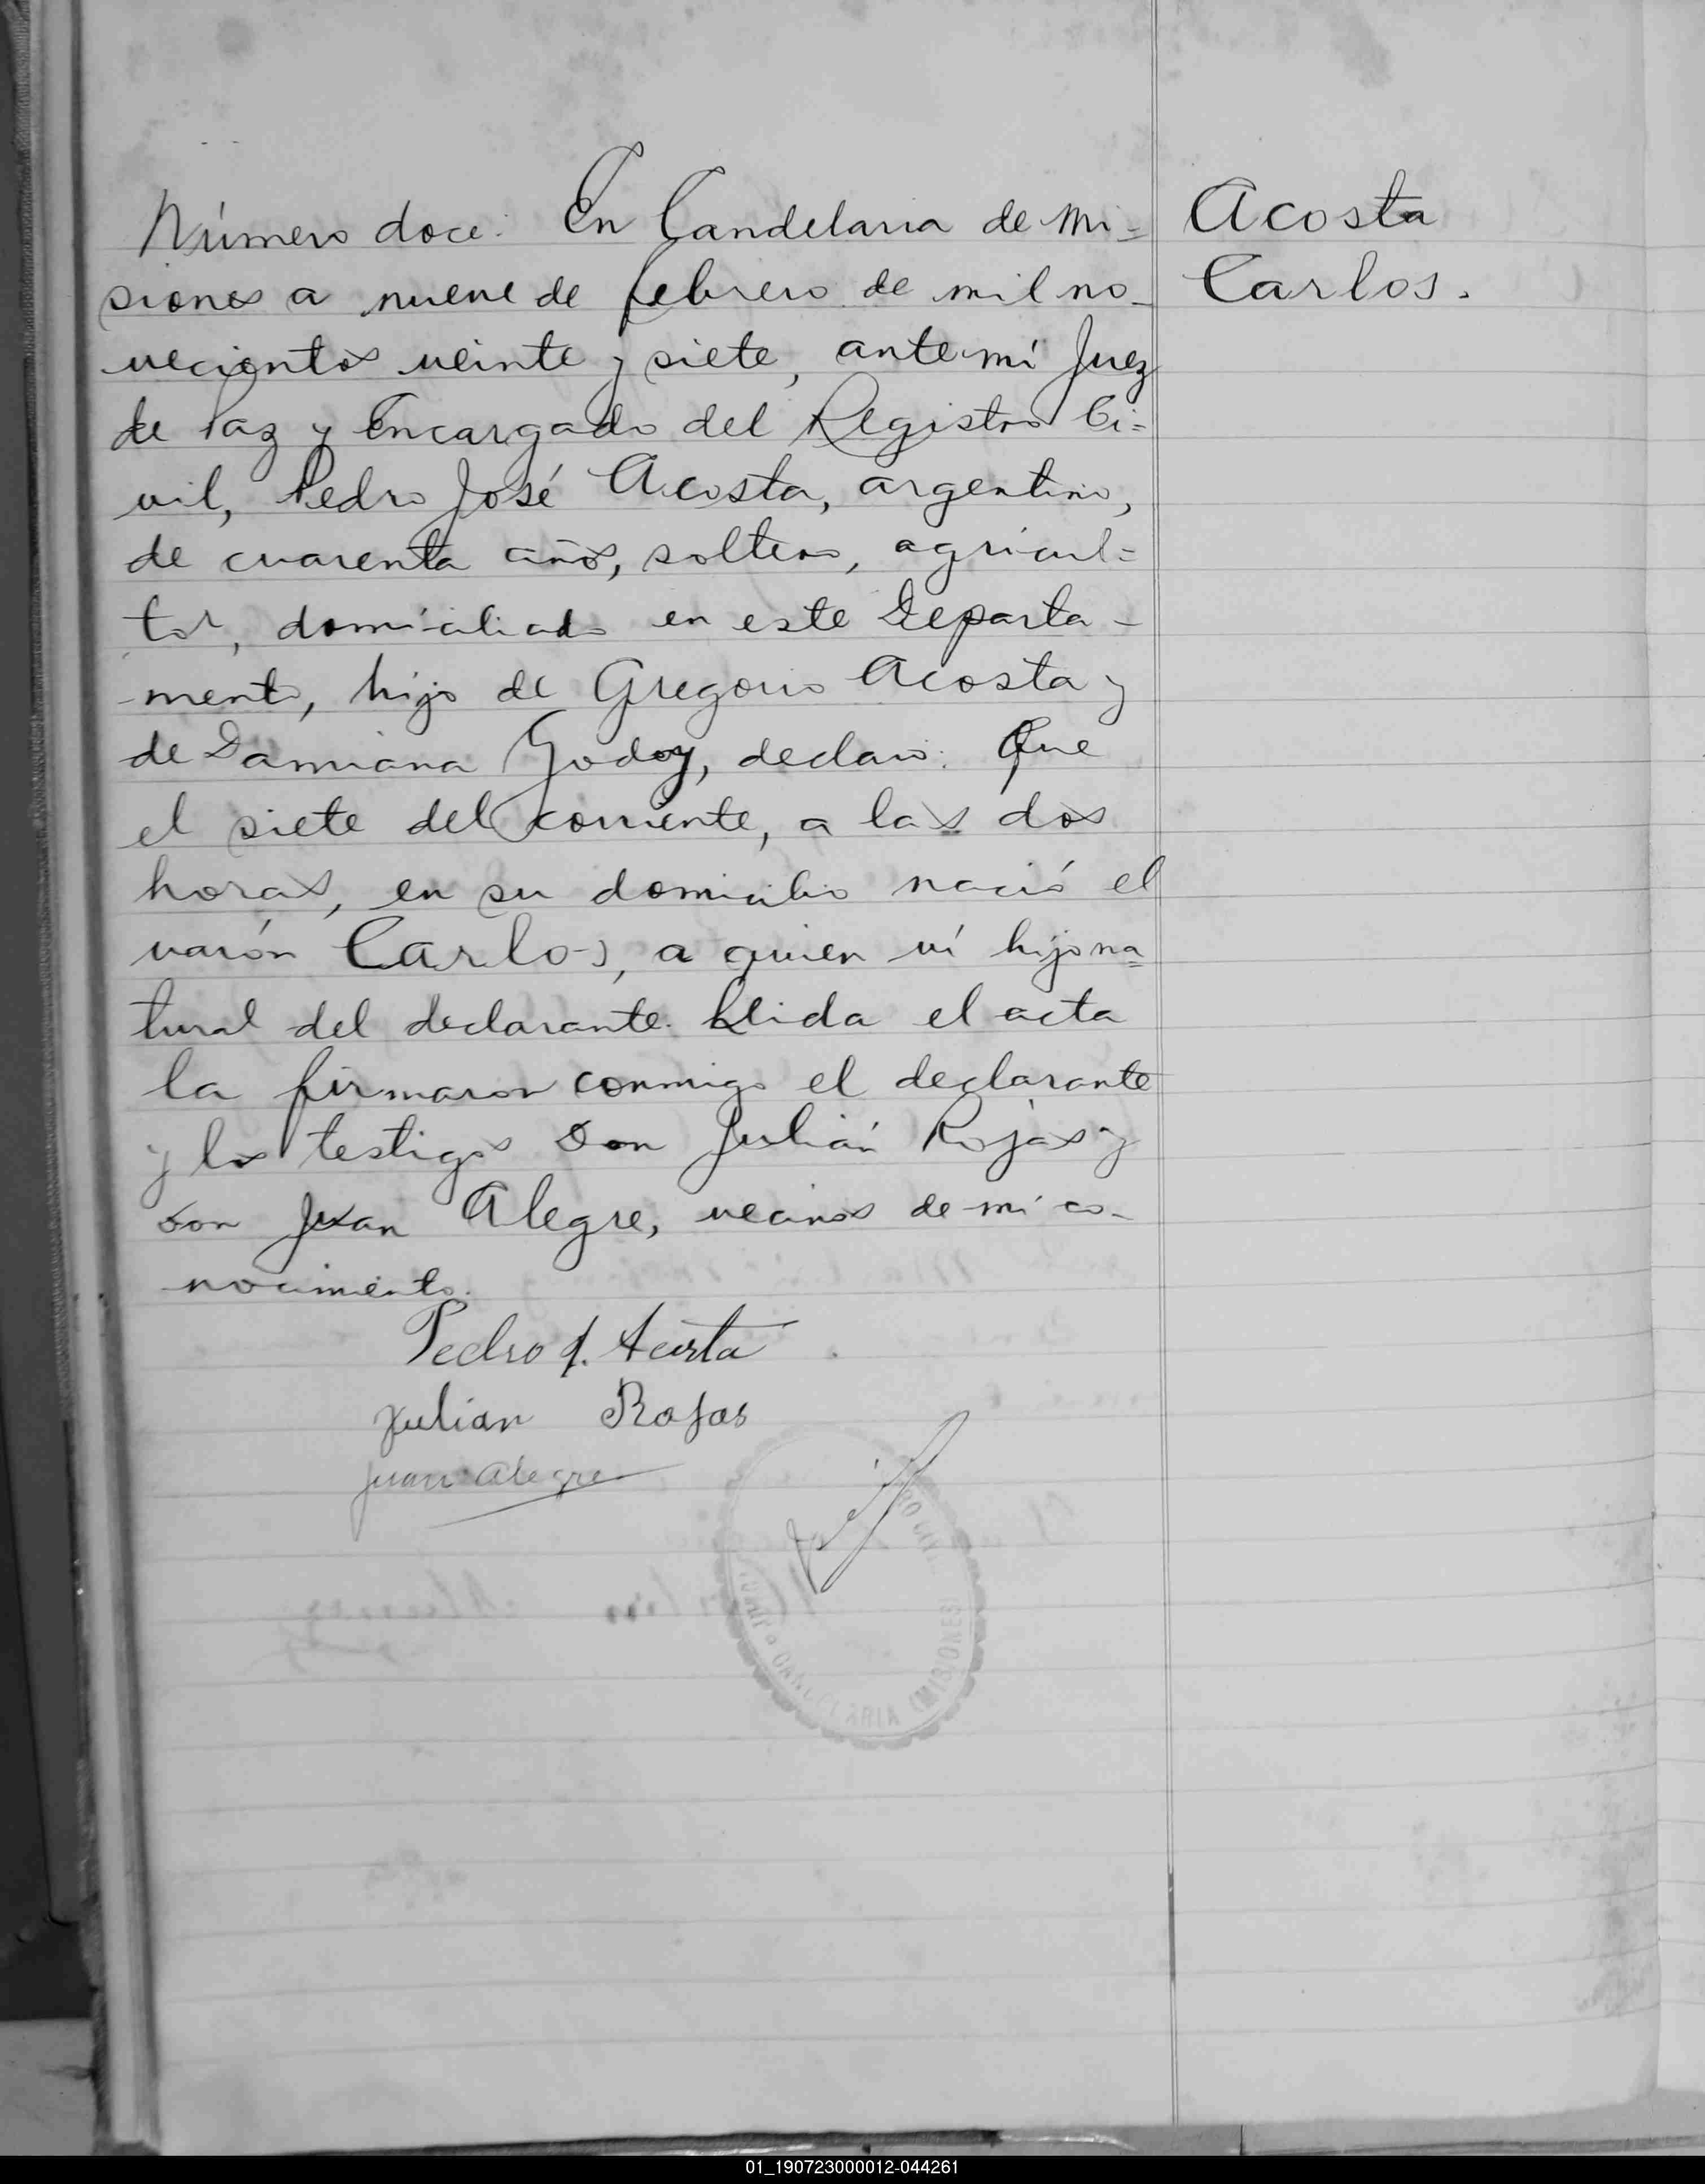 Número doce. En Candelaria de Mi=
siones a nueve de febrero de mil no-
vecientos veinte y siete, ante mí Juez
de Paz y Encargado del Registro Ci=
vil, Pedro José Acosta, argentino,
de cuarenta años, soltero, agricul=
tor, domiciliado en este Departa-
mento, hijo de Gregorio Acosta y
de Damiana Godoy, declaró: Que
el siete del corriente, a las dos
horas, en su domicilio nació el
varón Carlos, a quien ví hijo na=
tural del declarante. Leida el acta
la firmaron conmigo el declarante
y los testigos Don Julián Rojas y
Don Juan Alegre, vecinos de mi co-
nocimiento.
Acosta
Carlos.
Pedro J. Acosta
Julian Rojas
Juan Alegre
CANDELARIA (MISIONES)
01_190723000012-044261